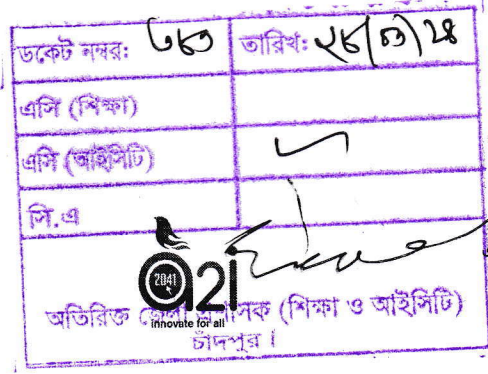 ডকেট নম্বর: ৩৮৩ তারিখ: ২৮/
এসি (শিক্ষা)
এসি (আইসিটি)
সি.এ
2041
a2i
innovate for all
অতিরিক্ত জেলা প্রশাসক (শিক্ষা ও আইসিটি)
চাঁদপুর।